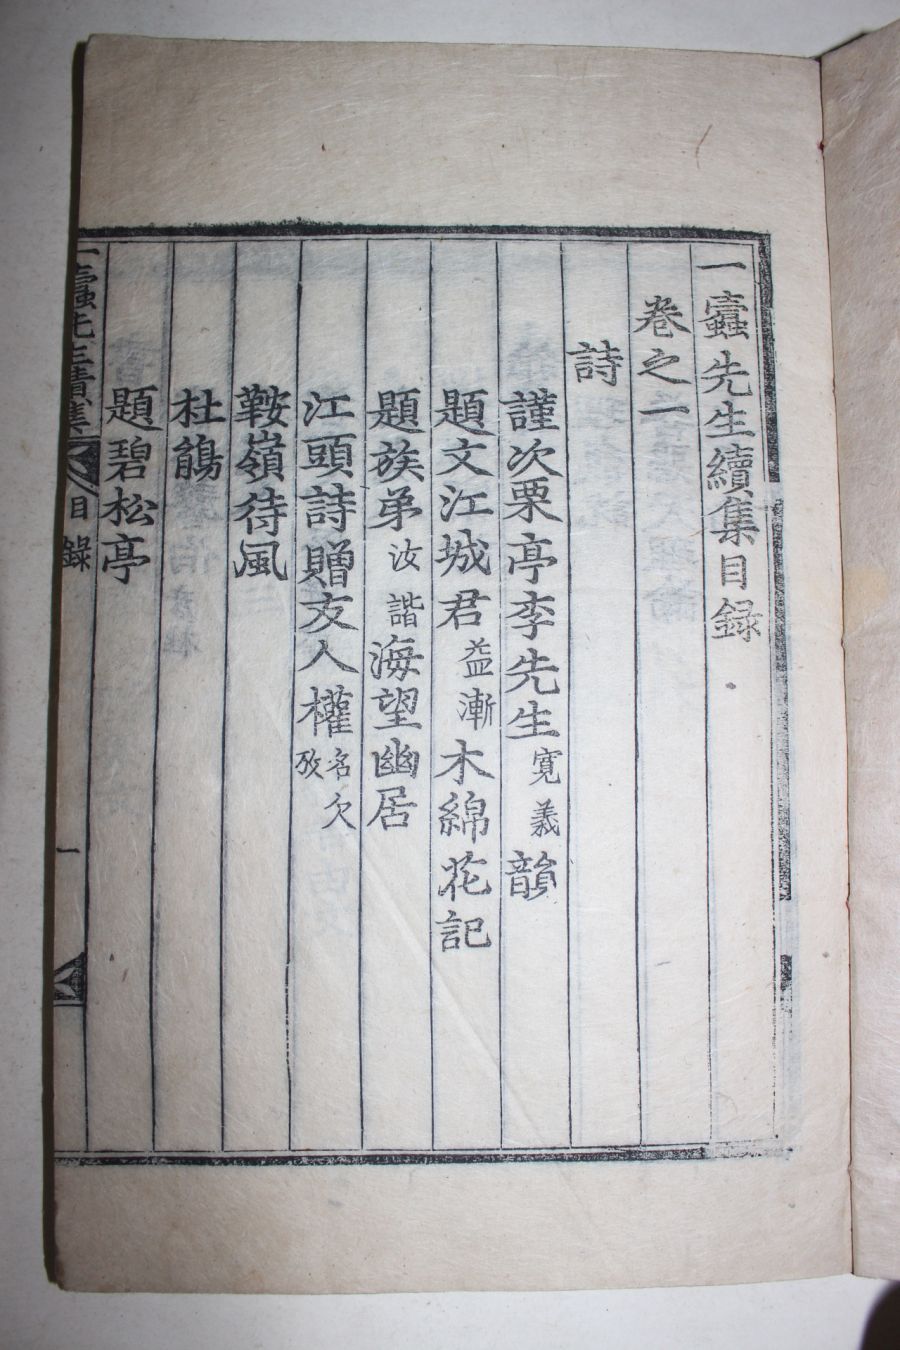 一蠹先生續集目録
卷之一
詩
謹次栗亭李先生寛義韻
題文江城君益漸木綿花記
題族弟汝諧海望幽居
江頭詩贈友人權名欠攷
鞍嶺待風
杜鵑
題碧松亭
一蠹先生續集 目錄 一